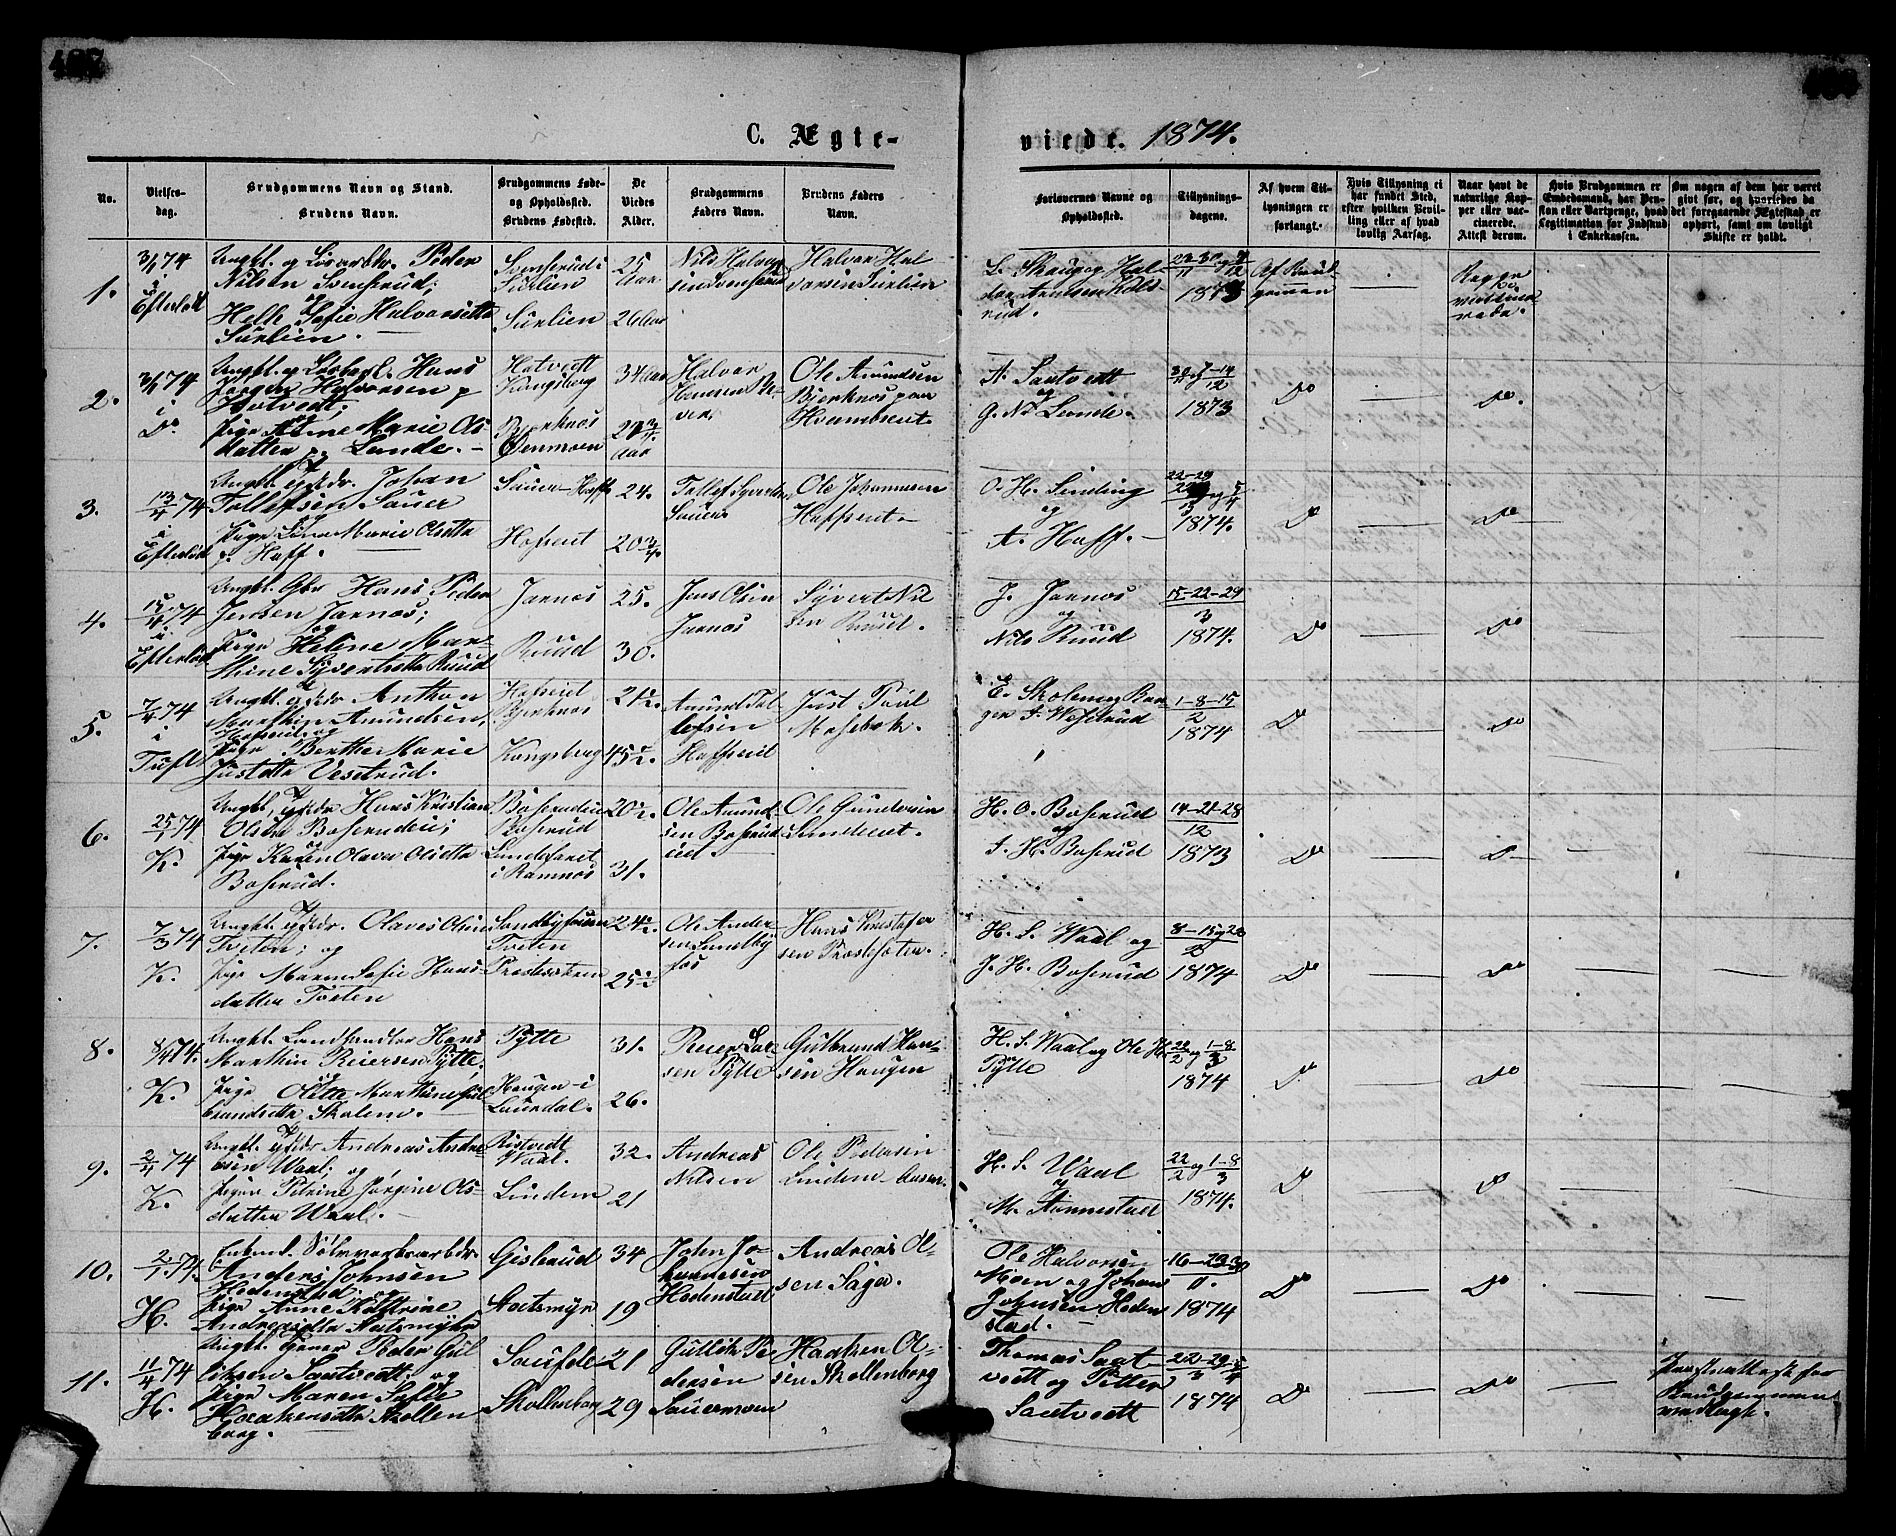 C. Ægte-
viede. 1874.
No.
Vielses-
dag.
Brudgommens Navn og Stand.
Brudens Navn.
Brudgommens Føde-
og Opholdssted.
Brudens Fødested.
De
Viedes
Alder.
Brudgommens
Faders Navn.
Brudens Faders
Navn.
Forlovernes Navne og
Opholdssted.
Tillysnings-
dagene.
Af hvem Til-
lysningen er
forlangt.
Hvis Tillysning ei
har fundet Sted,
efter hvilken Bevil-
ling eller af hvad
lovlig Aarsag.
Naar havt de
naturlige Kop-
per eller vac-
cinerede.
Attest derom.
Hvis Brudgommen er
Embedsmand, har Pen-
sion eller Vartpenge, hvad
Legitimation for Indskud
i Enkekassen.
Om nogen af dem har været
gift før, og hvorledes da
det foregaaende Ægteskab er
ophørt, samt om lovligt
Skifte er holdt.
1.
3/1 74
i
Eftelødt
Ungk. og Peder
Nilsen Svenserud;
og
Helle Sofie Halvorsdtr
Surlien.
Svenserud i
Surlien
Surlien
25
Aar
26 Aar
Nils Halvor
sen Svenserud
Halvor Hal
vorsen Surlien
L. Skaug og Hal
vor Amundsen
rud.
1873
Af Brud
gommen
Begge
vaccine
rede.
2.
3/1 74
i
Do
Ungk. og Hans
Jørgen Halvorsen p
Hotvedt;
og
Pige Anne Marie Ols
datter p. Lunde.
Hotvedt
Kongsberg
Bjerknes
Øenmoen
34 Aar
Aar
Halvor
Hansen
Ole Amundsen
Bjerknes
A. Santvedt
og
G. N. Lunde.
30/11 7-14/12
1873
Do
Do.
3.
13/4 74
i
Eftelødt
Ungk. Johan
Tollefsen Sauer
og
Pige Marie Olsdtr
p. Hoff.
Sauer Hoff
Hofseiet
24.
20 3/4
Tollef Syvertsen
Sauer
Ole Johannesen
Hoffseiet
O. H. Sinding
og
A. Hoff.
22-29
1874.
Do
Do
4.
74
i
Eftelødt
Ungk. Gbr Hans Peder
Jensen Jarnes;
og
Pige Helene Mar-
thine Syvertsdtr Ruud
Jarnes
Ruud
25.
30.
Jens Olsen
Jarnes
Syvert Nil
sen Ruud.
J. Jarnes
og
Nils Ruud
15-22-29
3
1874.
Do
Do
5.
7/4 74
i
Tuft
Ungk. Anthon
Marthin Amundsen,
Hofseiet og
Pige Berthe Marie
Justdtr Vestrud.
Hofseiet
Bjerknes
Kongsberg
21 1/2.
45 1/2.
Amund Tol
lefsen
Hoffseiet
Just Poul
Mosebæk.
E. Skolem og Bør
ger A. Vestrud
1-8-15
2
1874
Do
Do
6.
25/1 74
K.
Ungk. Hans Kristian
Olsen Boserudeie;
og
Pige Karen Olava Olsdtr
Boserud.
Boserudeie
Boserud
i Ramnes
20 1/2
31.
Ole Amund
sen Boserud
eiet
Ole Gundersen
Lundeeiet.
H. O. Boserud
og
A. H. Boserud
14-21-28
12
1873
Do
Do
7.
7/3 74
K.
Ungk. Olaves Olsen
Tveten; og
Pige Maren Sofie Hans
datter Tveten
Sandbyfossen
Tveten
24 1/2
25 1/2
Ole Ander
sen Sandby
fos
Hans Kristofer
sen
H. S. Waal og
J. H. Boserud
8-15 og 22
2
1874
Do
Do
8.
8/4 74.
K.
Ungk. Landhandler Hans
Marthin Reiersen Pytte.
Pige Olette Marthine Gul
brandsdtr Skolem.
Pytte
Haugen i
Laurdal.
31.
26.
Reier Lar
sen Pytte
Gulbrand Han
sen Haugen
H. S. Waal og Ole H.
Pytte
22/2 og 1-8/3
1874
Do
Do
9.
2/4 74
K.
Ungk. Andreas Andre
asen Waal; og
Pige Petrine Jørgine Ols-
datter Waal.
Ristvedt
Waal.
Lindem
32.
21
Andreas
Nilsen
Ole Pedersen
Lindem
H. S. Waal
og
M. Aannestad
22/2 og 1-8/3
1874.
Do
Do
10.
2/1 74.
H.
Enkmd. Sølvverksarbdr.
Anders Johnsen
Hedenstad; og
Pige Anne Kathrine
Andreasdtr Aatsmyhr
Gisterud
Aatsmyr
34
19
John Jo-
hannesen
Hedenstad
Andreas Ol-
sen Saga.
Ole Halvorsen
Moen og Johan
Johnsen Heden
stad.
16-23-30
11.
1874
Do
Do
11.
11/4 74
H.
Ungk. Peder Gul
liksen Santvedt og
Pige Maren Sofie
Haakensdtr Skollen
borg.
Skollenborg
21
29
Gullik Pe
dersen
Sauermoen
Haaken Ol-
sen Skollenborg
Thomas Sant
vedt og Petter
Santvedt
22-29
1874
Do
Do
Præsteattest for
Brudgommen
vedlagt.